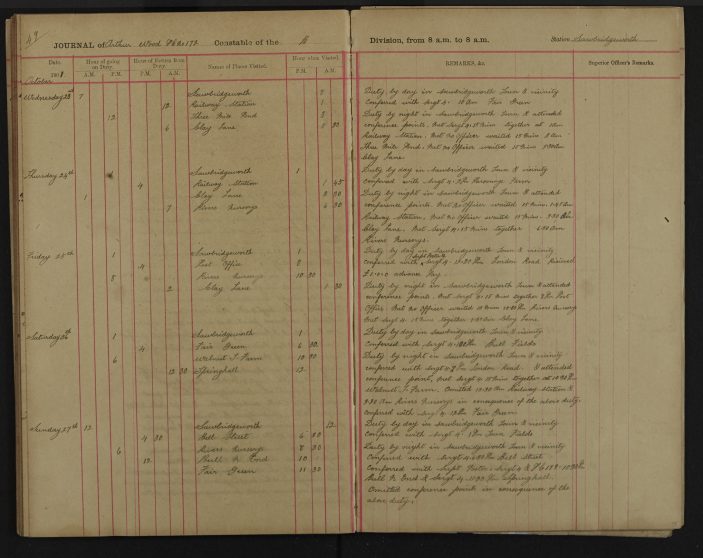 49
JOURNAL of Arthur Wood PC 172 Constable of the A Division, from 8 a.m. to 8 a.m. Station Sawbridgeworth
Date. Hour of going on Duty. Hour of Return from Duty. Name of Places Visited. Hour when Visited. REMARKS, &c. Superior Officer's Remarks.
190 A.M. P.M. A.M. P.M. P.M. A.M.
October
Wednesday 7 Sawbridgeworth 7 Duty by day in Sawbridgeworth Town & vicinity
12 Railway Station 1 Conferred with Sergt 4. 10 am Fair Green
12 Three Mile Pond 3 Duty by night in Sawbridgeworth Town & attended
6 Clay Lane 5 30 conference points. Met Sergt 4. 15 mins together at 1am
Railway Station. Met no Officer waited 15 mins 3 am
Three Mile Pond. Met no Officer waited 15 mins 5.30 am
Clay Lane
Thursday 24th Sawbridgeworth 1 Duty by day in Sawbridgeworth Town & vicinity
4 Railway Station 1 45 conferred with Sergt 4. Parsonage Farm
1 Clay Lane 3 30 Duty by night in Sawbridgeworth Town & attended
7 Rivers Nurserys 6 30 conference points. Met no Officer waited 15 mins. 1.45 am
Railway Station. Met no Officer waited 15 mins. 3.30 am
Clay Lane. Met Sergt 4. 15 mins together 6.30 am
Rivers Nurserys.
Friday 25th 1 Sawbridgeworth 1 Duty by day in Sawbridgeworth Town & vicinity
4 Post Office 9 conferred with Sergt 4. London Road. Received
8 Rivers Nurserys 10 30 £1.0.0 advance Pay
2 Clay Lane 1 30 Duty by night in Sawbridgeworth Town & attended
conference points. Met Sergt 4. 15 mins together 9 Pm Post
Office. Met no Officer waited 15 mins 10.30 Pm Rivers Nurserys
Met Sergt 4. 15 mins together 1.30 am Clay Lane
Saturday 26th 1 Sawbridgeworth 1 Duty by day in Sawbridgeworth Town & vicinity
4 Fair Green 6 30 Conferred with Sergt 4. Bell Fields
6 Walnut T. Farm 10 30 Duty by night in Sawbridgeworth Town & vicinity
12 30 Springhall 12 conferred with Sergt 4 London Road. & attended
conference point, met Sergt 4 15 mins together at 10.30 Pm
Walnut T. Farm. Omitted Railway Station &
Rivers Nurserys in consequence of the above duty
conferred with Sergt 4. 12 Fair Green
Sunday 27th 12 Sawbridgeworth 12 Duty by day in Sawbridgeworth Town & vicinity
4 30 Bell Street 6 30 Conferred with Sergt 4. 1 Pm Town Fields
6 Rivers Nurserys 8 30 Duty by night in Sawbridgeworth Town & vicinity
12 10 Conferred with Sergt 4 Bell Street
Fair Green 11 30 Conferred with Supt Sergt 4 & PC
& Sergt 4 11.30 Pm Springhall.
Omitted conference points in consequence of the
above duty.